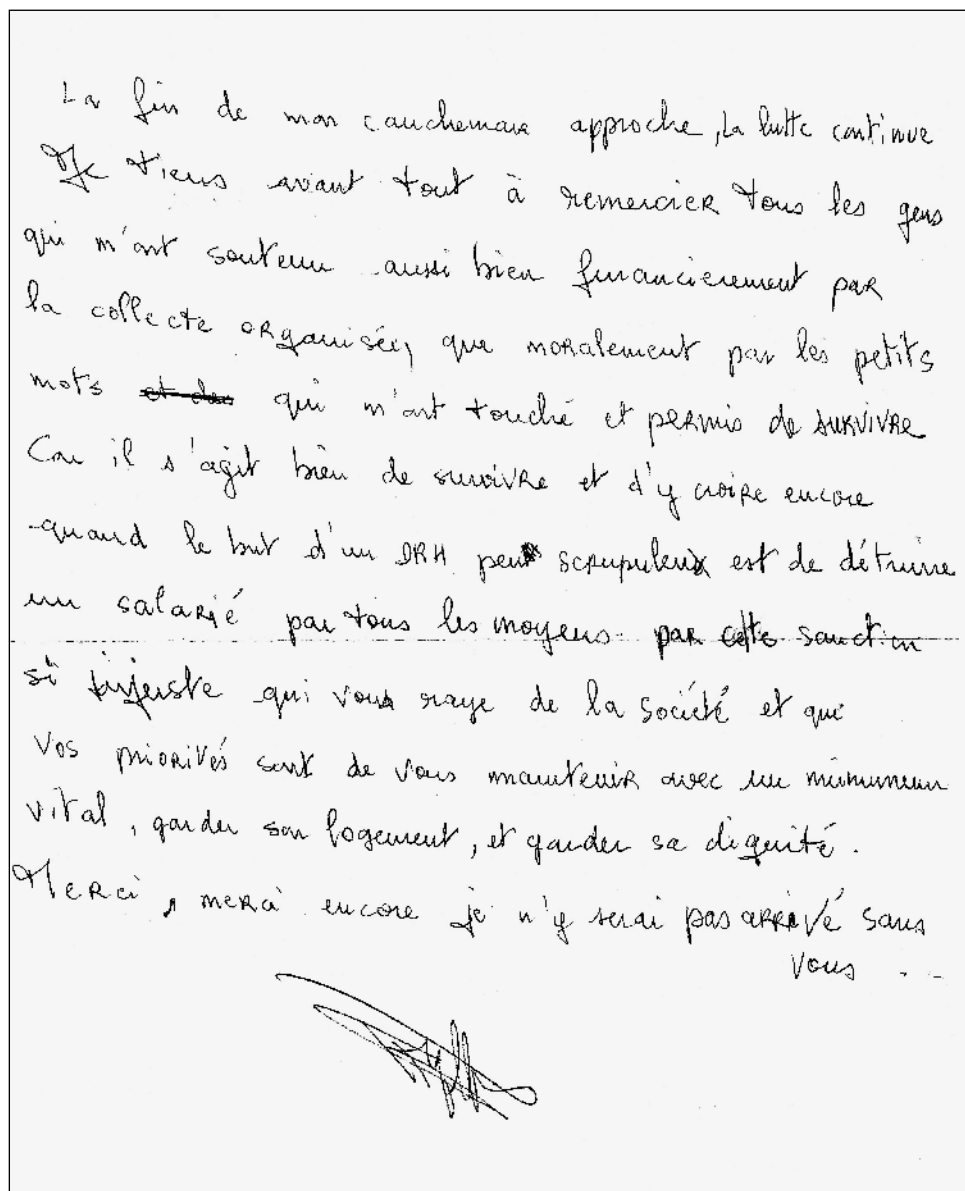 La fin de mon cauchemar approche, La lutte continue
Je tiens avant tout à remercier tous les gens
qui m'ont soutenu aussi bien financierement par
la collecte organisée, que moralement par les petits
mots et des qui m'ont touché et permis de survivre
Car il s'agit bien de survivre et d'y croire encore
quand le but d'un DRH peu scrupuleux est de détruire
un salarié par tous les moyens par cette sanction
si injuste qui vous raye de la société et que
vos priorités sont de vous maintenir avec un minumum
vital, garder son logement, et garder sa dignité.
Merci, merci encore je n'y serai pas arrivé sans
vous ..